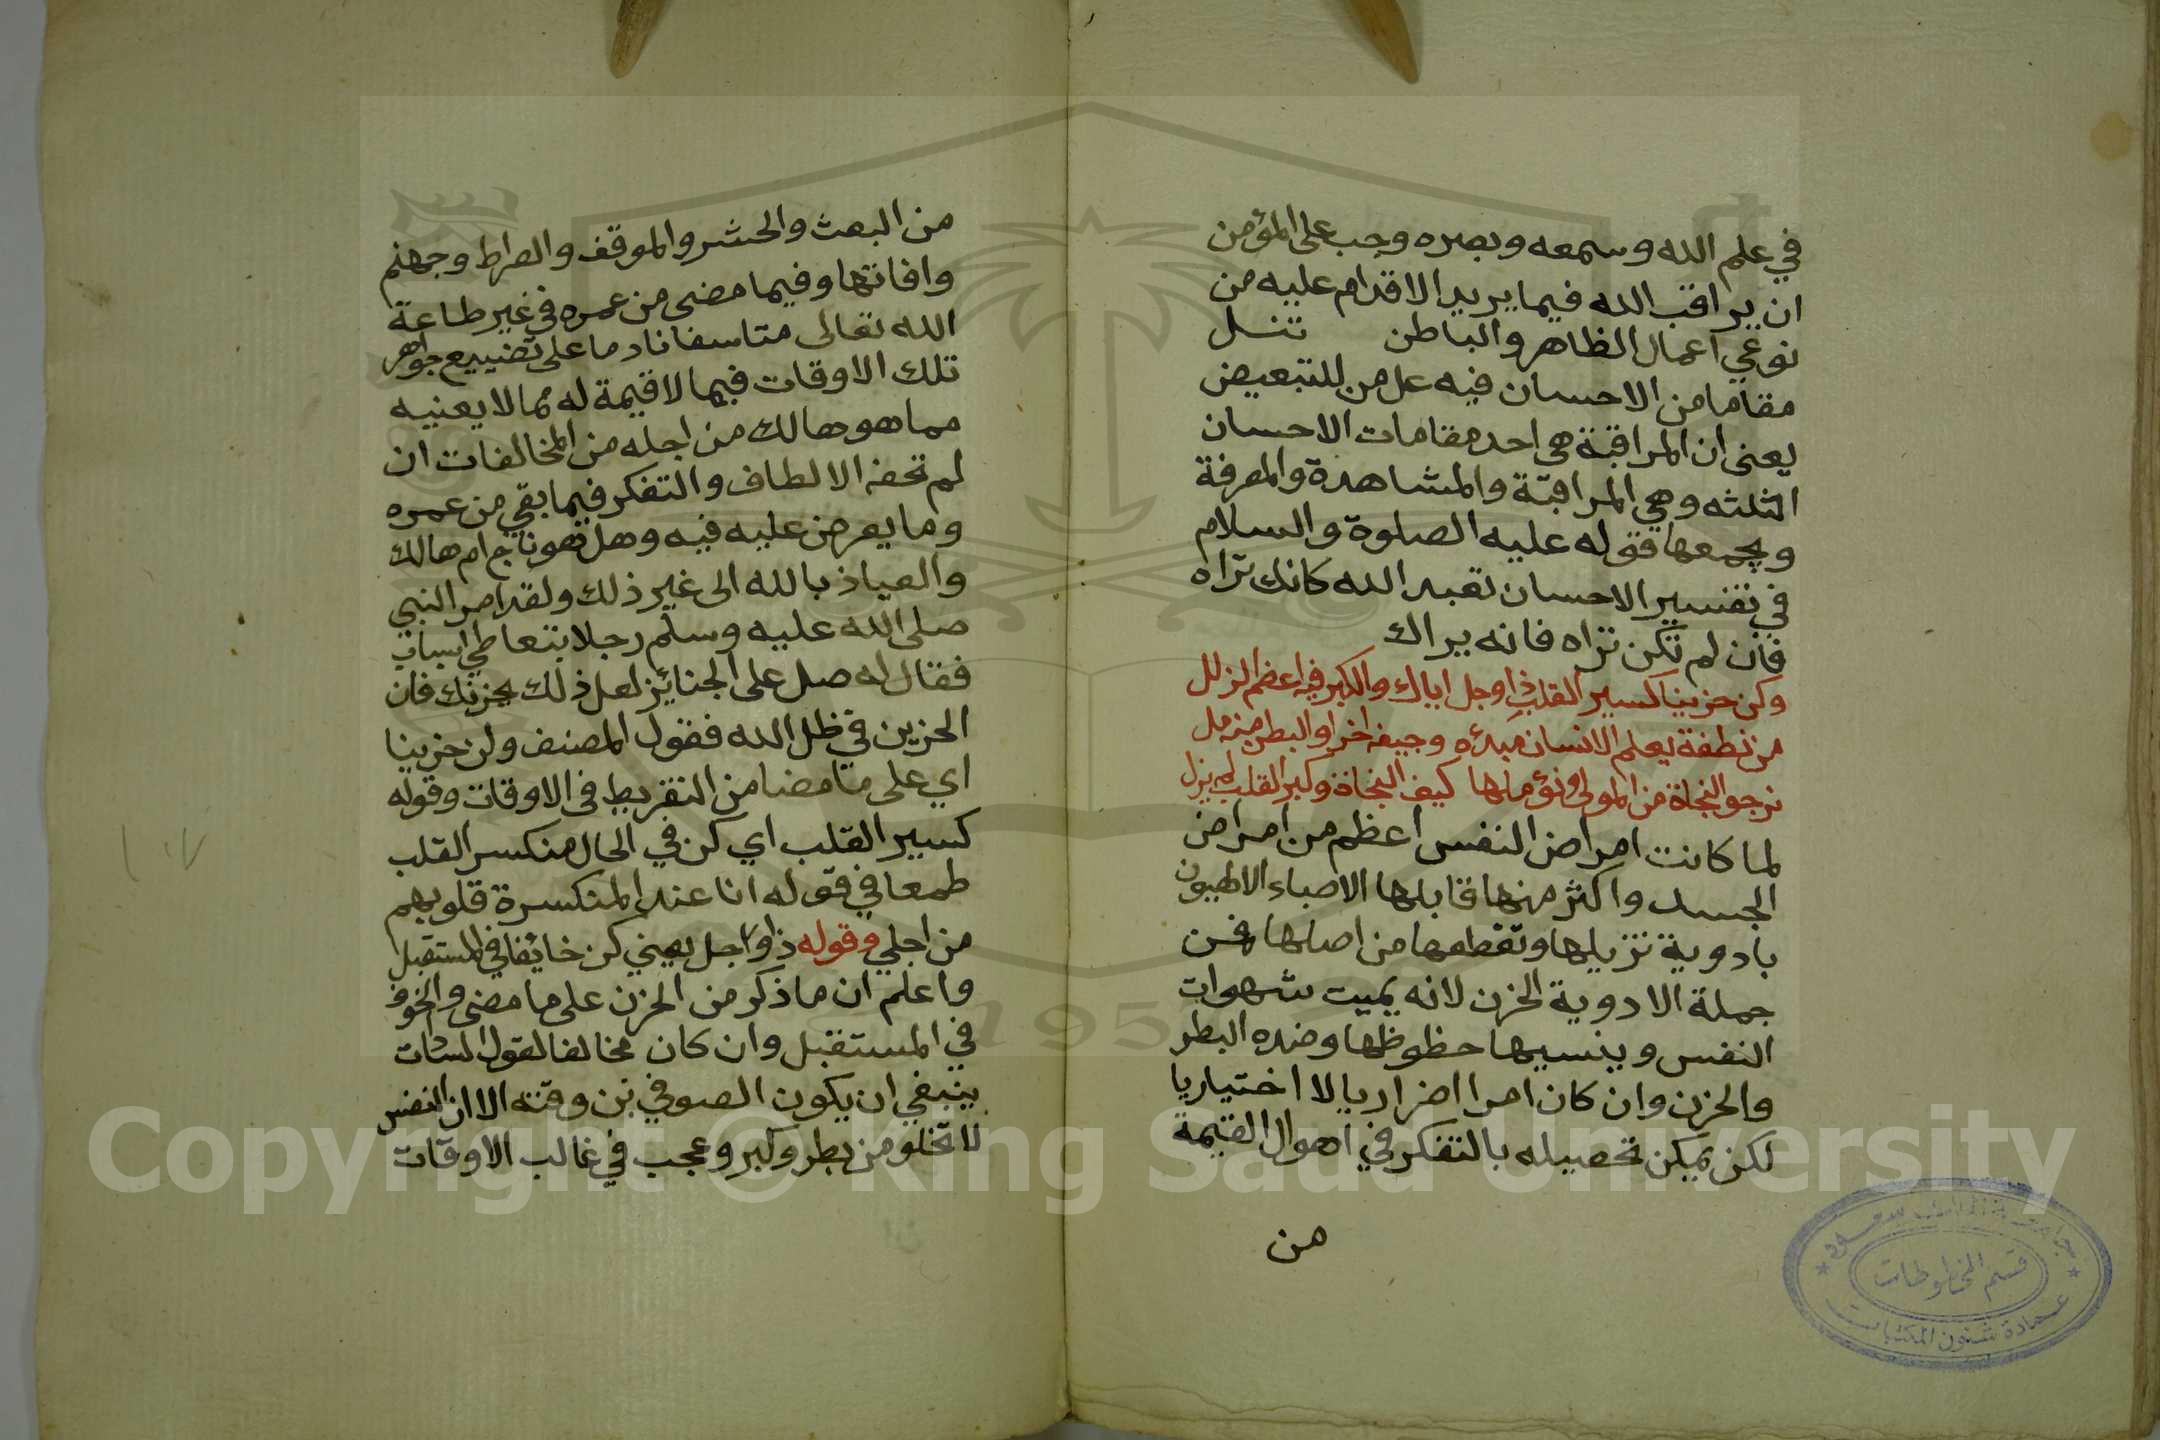 في علم الله وسمعه وبصره وجب على المؤمن
ان يراقب الله فيما يريد الاقدام عليه من
نوعي اعمال الظاهر والباطن تنل
مقاما من الاحسان فيه عل من للتبعيض
يعنى ان المراقبة هي احد مقامات الاحسان
الثلثه وهي المراقبة والمشاهدة والمعرفة
ويجمعها قوله عليه الصلوة والسلام
في تفسير الاحسان تعبد الله كانك تراه
فان لم تكن تراه فانه يراك
وكن حزينا كسير القلب ذا وجل اياك والكبر فيه اعظم الزلل
من نطفة يعلم الانسان مبدئه وجيفه اخرا والبطر منه مل
نرجو النجاة من المولى ونؤملها كيف النجاة وكبر القلب لم يزل
لما كانت امراض النفس اعظم من امراض
الجسد واكثر منها قابلها الاطباء الالهيون
بادوية تزيلها وتقطعها من اصلها فمن
جملة الادوية الحزن لانه يميت شهوات
النفس وينسيها حظوظها وضده البطر
والحزن وان كان امرا اضراريا لا اختياريا
لكن يمكن تحصيله بالتفكر في اهوال القيمة
من
من البعث والحشر والموقف والصراط وجهنم
وافاتها وفيما مضى من عمره في غير طاعة
الله تعالى متاسفا نادما على تضييع جواهر
تلك الاوقات فيما لا قيمة له مما لا يعنيه
مما هو هالك من اجله من المخالفات ان
لم تحفه الالطاف والتفكر فيما بقي من عمره
وما يعرض عليه فيه وهل هو ناج ام هالك
والعياذ بالله الى غير ذلك ولقد امر النبي
صلى الله عليه وسلم رجلا بتعاطي اسباب
فقال له صل على الجنائز لعل ذلك يحزنك فان
الحزين في ظل الله فقول المصنف وكن حزينا
اي على ما مضا من التفريط في الاوقات وقوله
كسير القلب اي كن في الحال منكسر القلب
طمعا في قوله انا عند المنكسرة قلوبهم
من اجلي وقوله ذا وجل يعني كن خائفا في المستقبل
واعلم ان ما ذكر من الحزن على ما مضى والخوف
في المستقبل وان كان مخالفا لقول السادات
ينبغي ان يكون الصوفي بن وقته الا ان النفس
لا تخلو من بطر وكبر وعجب في غالب الاوقات
جامعة الملك سعود
قسم المخطوطات
عمادة شئون المكتبات
1957
Copyright © King Saud University